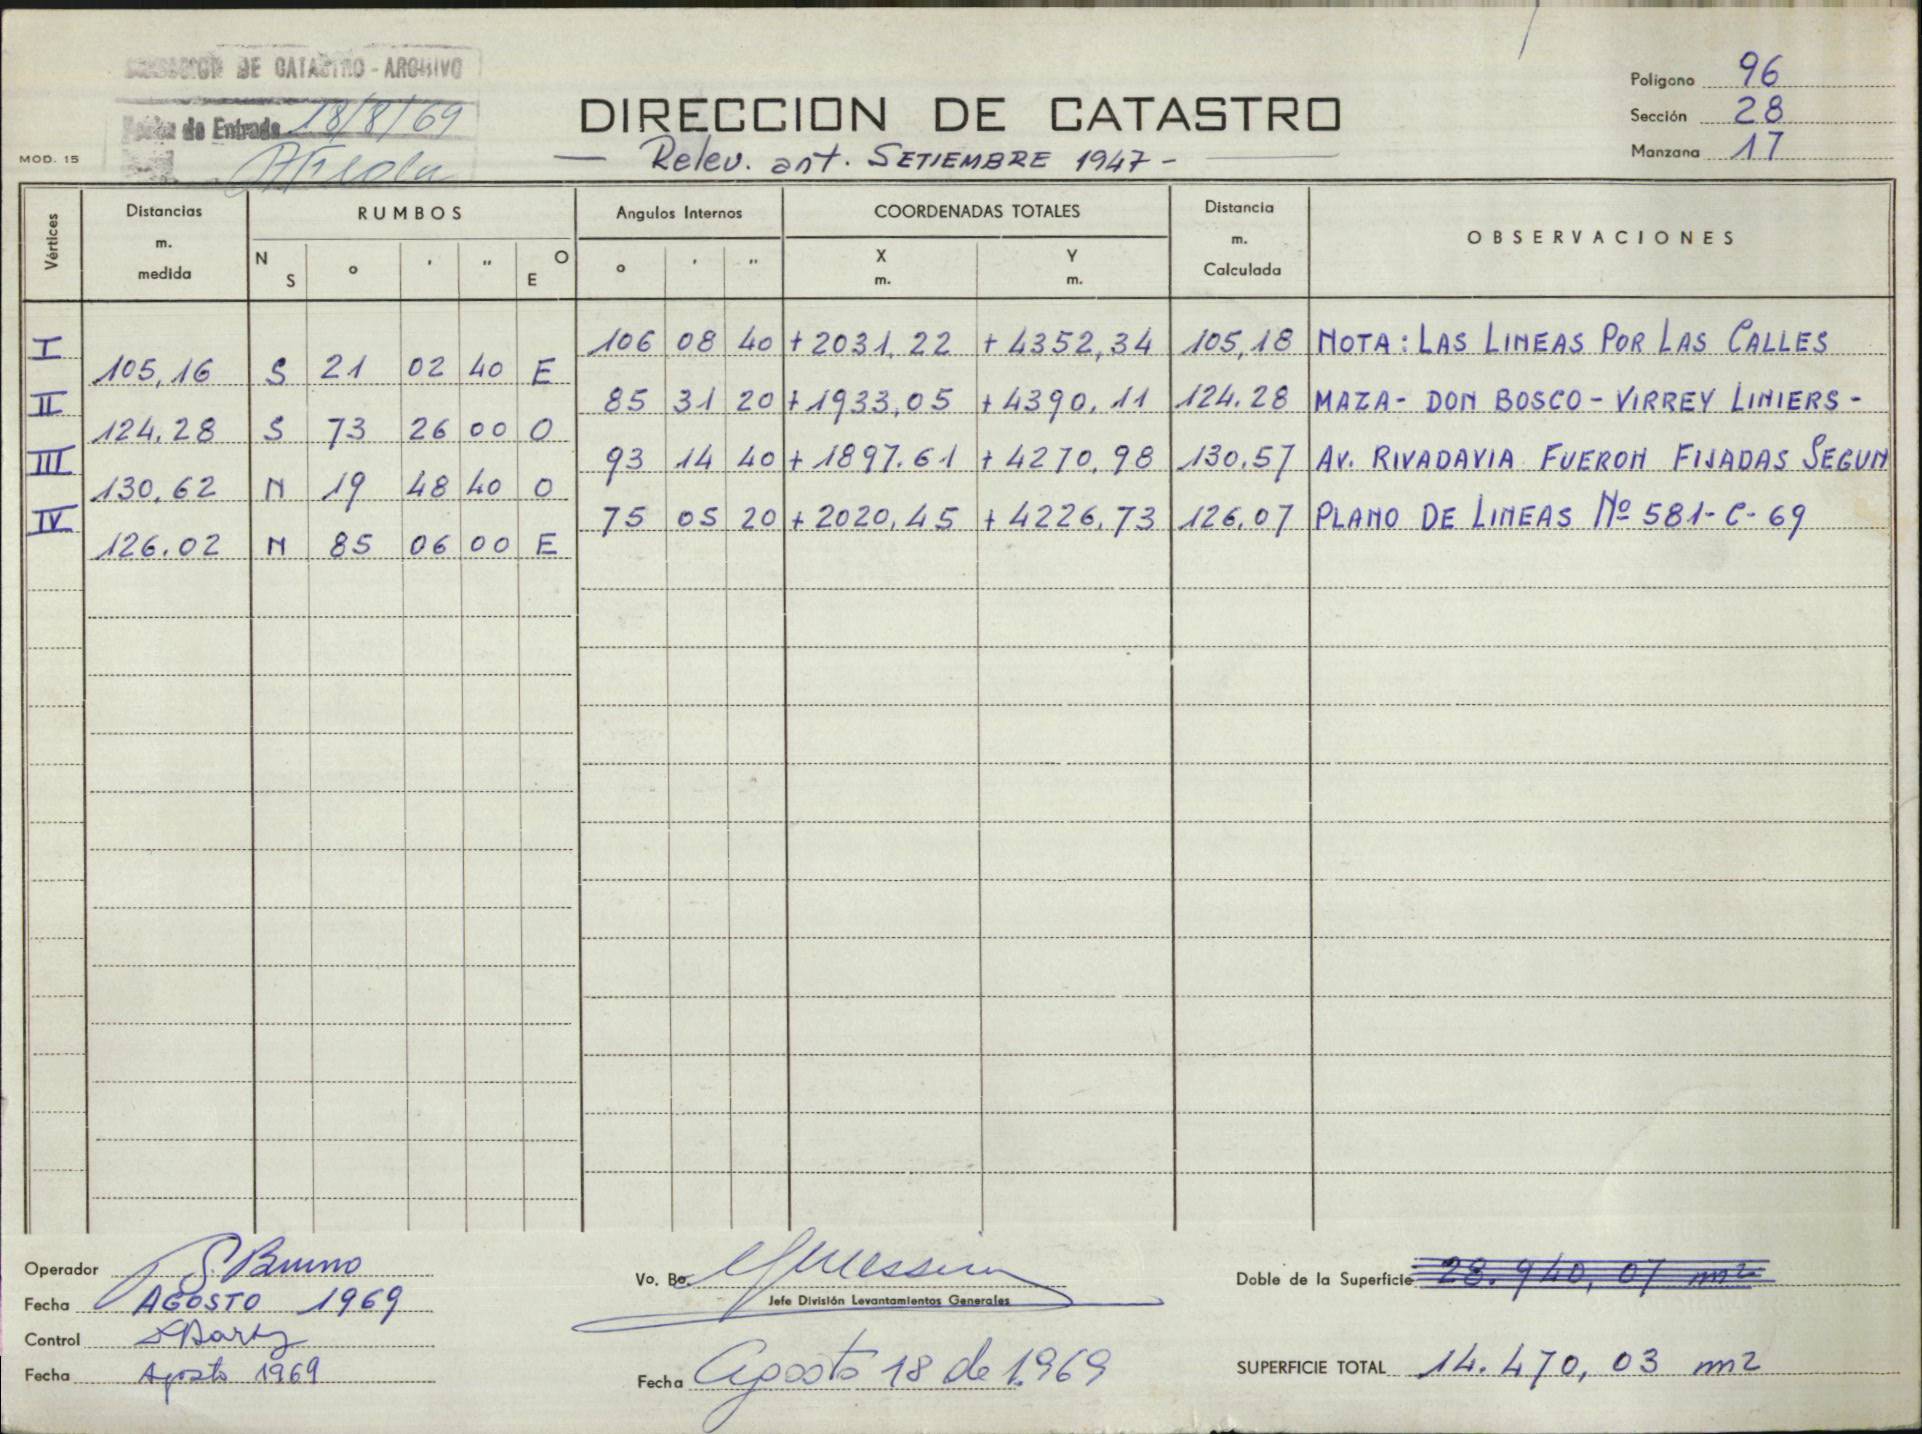 DE CATASTRO - ARCHIVO
Fecha de Entrada 18/8/69
MOD. 15
DIRECCION DE CATASTRO
— Relev. ant. SETIEMBRE 1947 -
Polígono 96
Sección 28
Manzana 17
Vértices Distancias m. medida RUMBOS N S o ' " O E Angulos Internos o ' " COORDENADAS TOTALES X m. Y m. Distancia m. Calculada OBSERVACIONES
I 106 08 40 + 2031,22 + 4352,34 105,18 NOTA: LAS LINEAS POR LAS CALLES
105,16 S 21 02 40 E
II 85 31 20 + 1933,05 + 4390,11 124.28 MAZA - DON BOSCO - VIRREY LINIERS -
124,28 S 73 26 00 O
III 93 14 40 + 1897.61 + 4270,98 130,57 AV. RIVADAVIA FUERON FIJADAS SEGUN
130,62 N 19 48 40 O
IV 75 05 20 + 2020,45 + 4226,73 126,07 PLANO DE LINEAS Nº 581-C-69
126.02 N 85 06 00 E
Operador S. Bruno
Fecha AGOSTO 1969
Control
Fecha Agosto 1969
Vo. Bo.
Jefe División Levantamientos Generales
Fecha Agosto 18 de 1.969
Doble de la Superficie 28.940,07 m2
SUPERFICIE TOTAL 14.470,03 m2